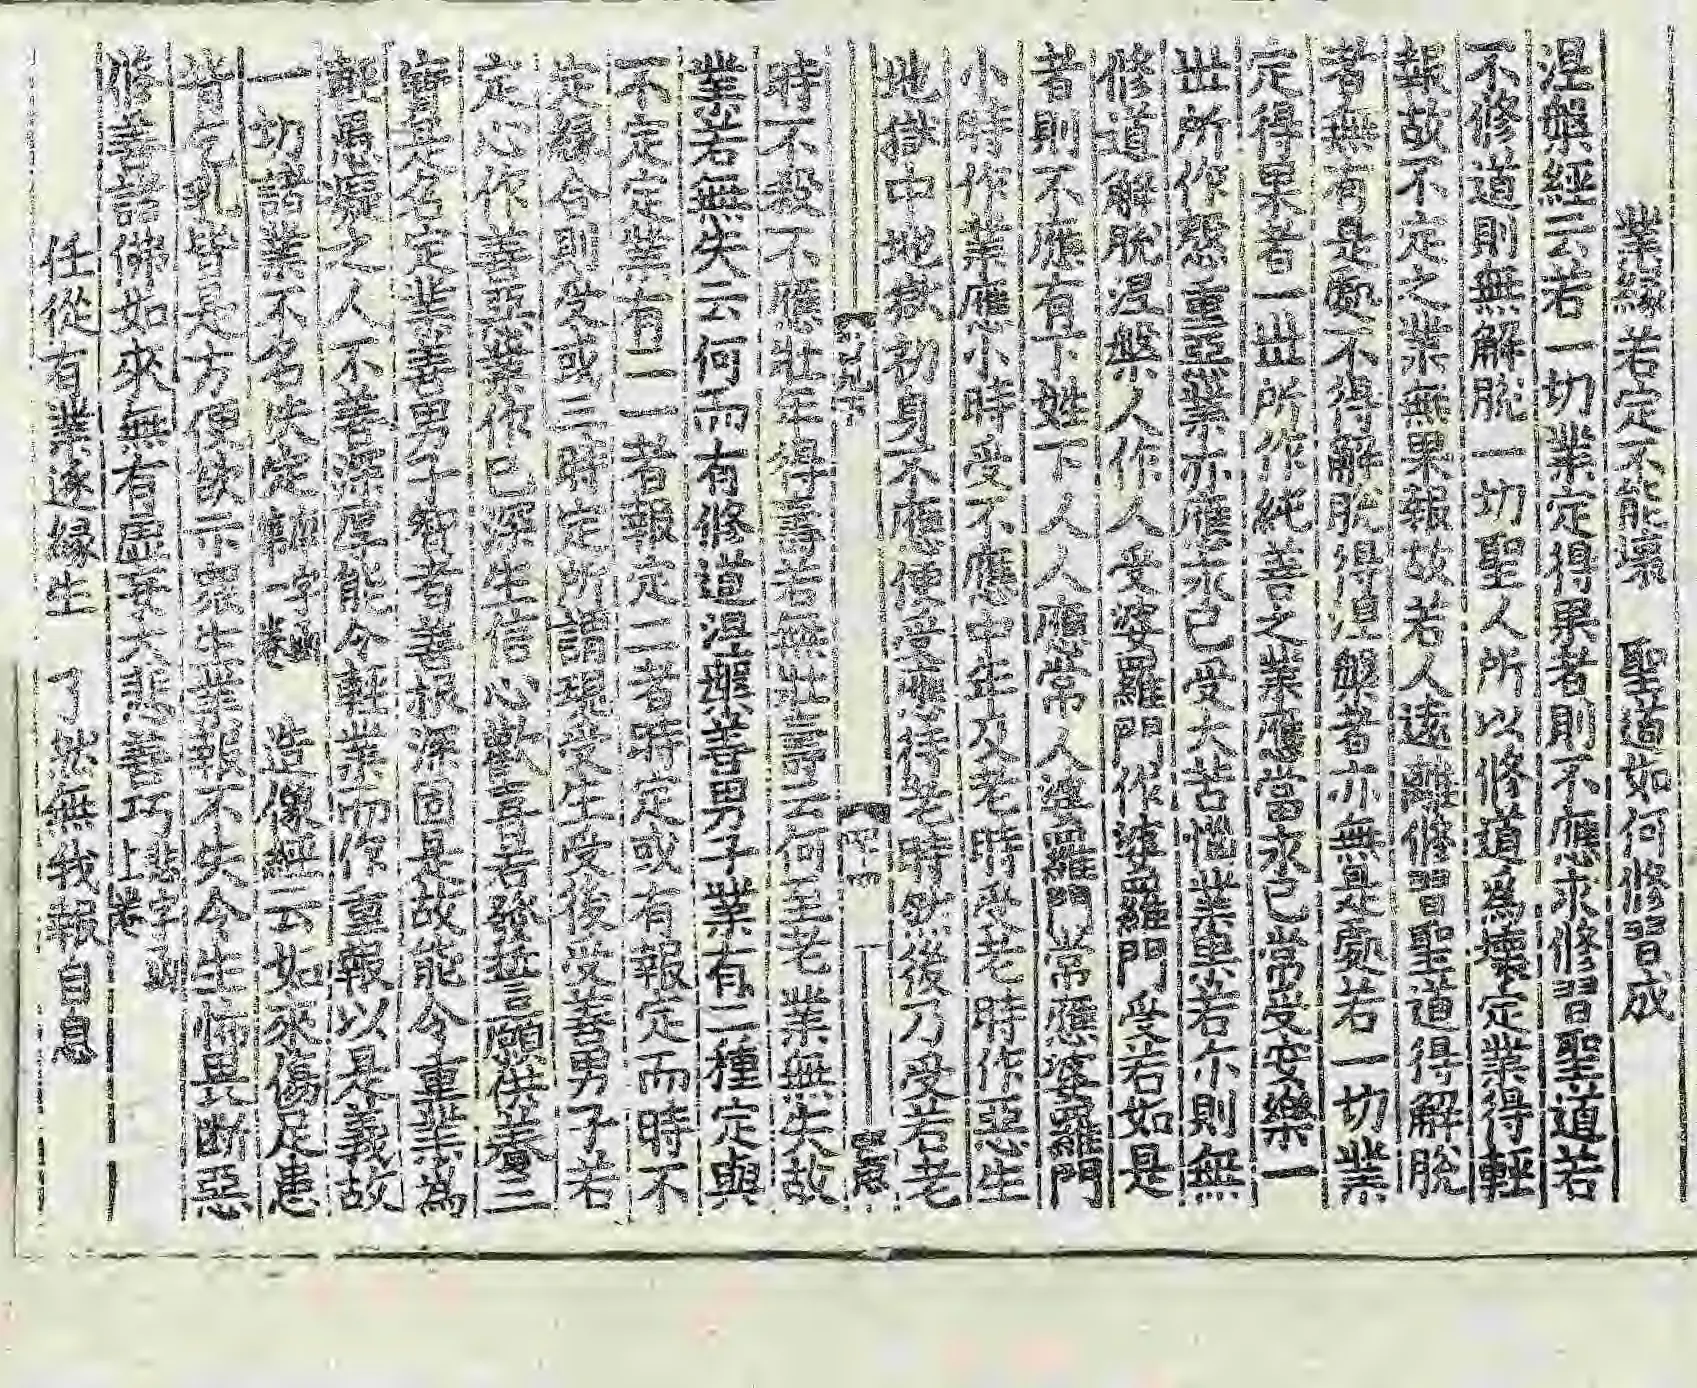 業緣若定不能壞　聖道如何修習成
涅槃經云若一切業定得果者則不應求修習聖道若
不修道則無解脫一切聖人所以修道為壞定業得輕
報故不定之業無果報故若人遠離修習聖道得解脫
者無有是處不得解脫得涅槃者亦無是處若一切業
定得果者一世所作純善之業應當永已常受安樂一
世所作極重惡業亦應永已受大苦惱業果若尒則無
修道解脫涅槃人作人受婆羅門作婆羅門受若如是
者則不應有下姓下人人應常人婆羅門常應婆羅門
小時作業應小時受不應中年及老時受老時作惡生
地獄中地獄初身不應便受應待老時然後乃受若老
時不殺不應壯年得壽若無壯壽云何至老業無失故
業若無失云何而有修道涅槃善男子業有二種定與
不定定業有二一者報定二者時定或有報定而時不
定緣合則受或三時定所謂現受生受後受善男子若
定心作善惡業作已深生信心歡喜若發誓願供養三
寶是名定業善男子智者善根深固是故能令重業為
輕愚癡之人不善深厚能令輕業而作重報以是義故
一切諸業不名決定　造像經云如來傷足患
背乞乳皆是方便欲示眾生業報不失令生怖畏斷惡
修善諸佛如來無有虛妄大悲善巧上卷
任從有業逐緣生　了然無我報自息